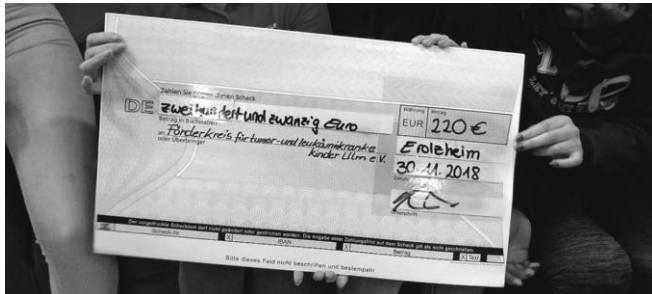 Zahlen Sie gegen diesen Scheck
DE zweihundertundzwanzig Euro
Betrag in Buchstaben
an Förderkreis für tumor-und leukämiekranke
Kinder Ulm e.V.
oder Überbringer
Währung Betrag
EUR 220 €
Erolzheim
30.11.2018
Datum
Unterschrift
Der vorgedruckte Schecktext darf nicht geändert oder gestrichen werden. Die Angabe einer Zahlungsfrist auf dem Scheck gilt als nicht geschrieben.
Scheck-Nr. X IBAN X Betrag X Text
Bitte dieses Feld nicht beschriften und bestempeln